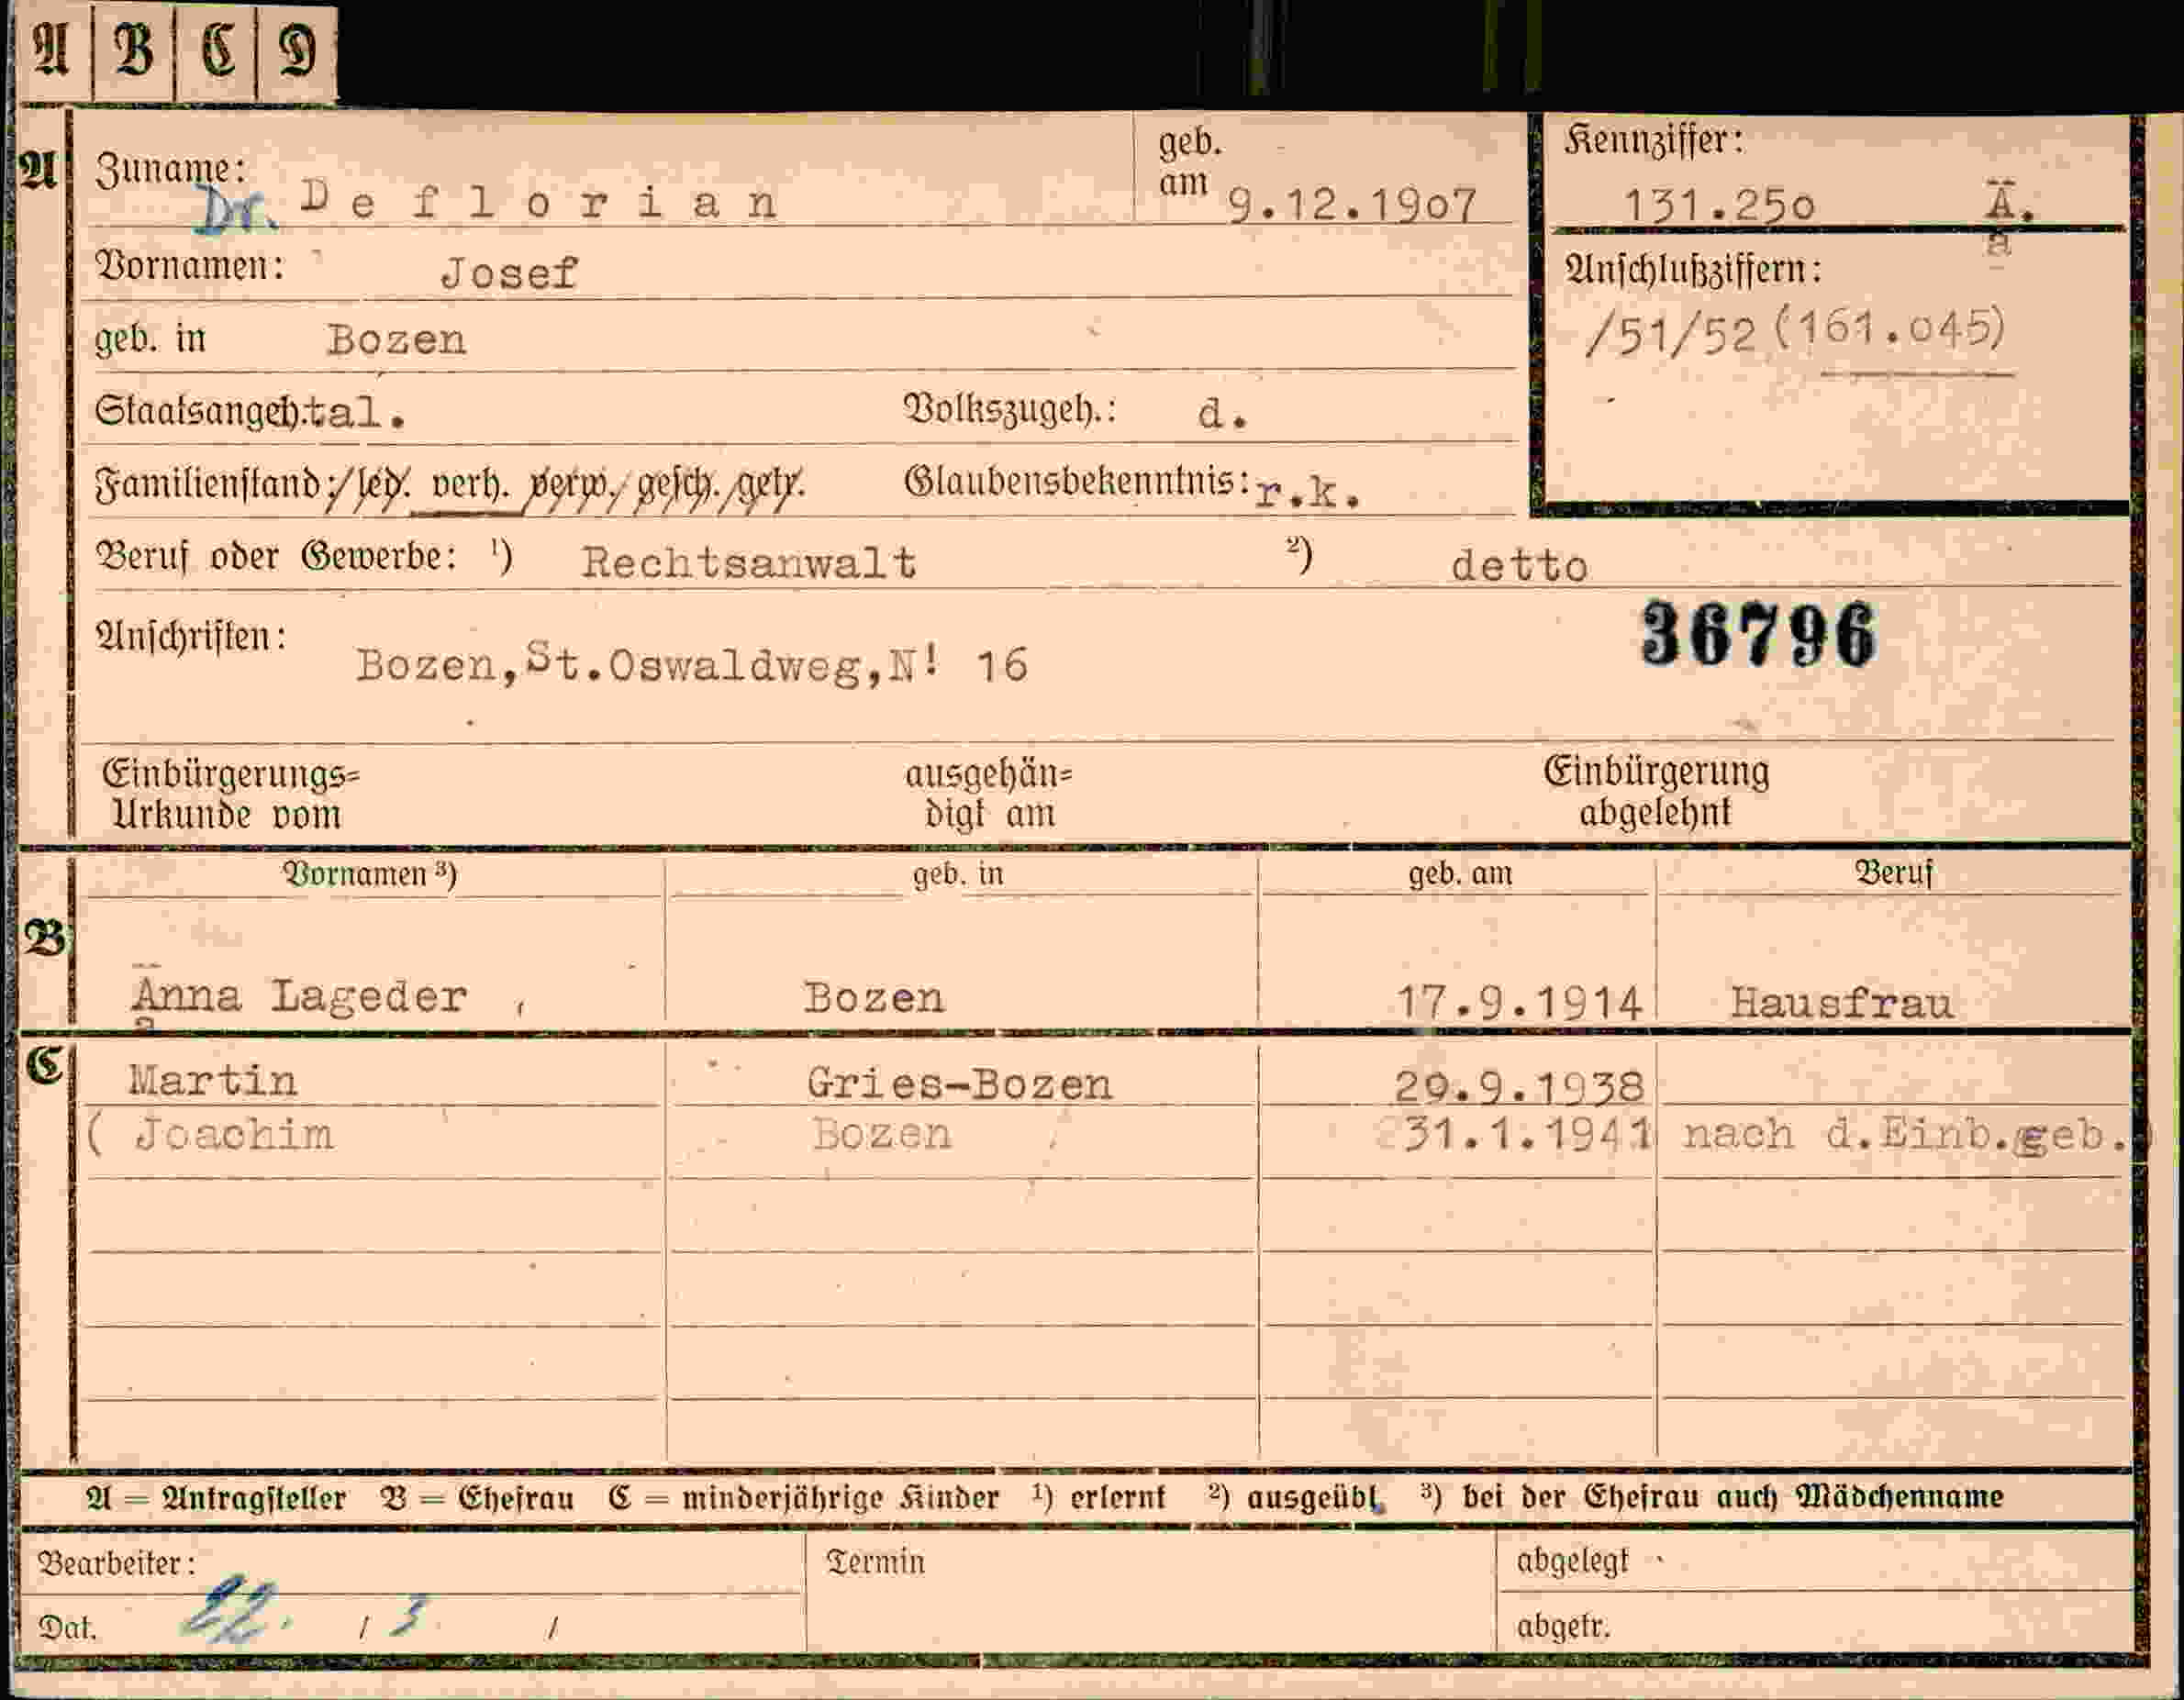 A B C D
A Zuname: Dr. Deflorian geb. am 9.12.1907 Kennziffer: 131.250 Ä.
a
Vornamen: Josef
Anschlußziffern:
geb. in Bozen /51/52 (161.045)
Staatsangeh.: tal. Volkszugeh.: d.
Familienstand: led. verh. verw. gesch. getr. Glaubensbekenntnis: r.k.
Beruf oder Gewerbe: ¹) Rechtsanwalt ²) detto
36796
Anschriften: Bozen,St.Oswaldweg,N! 16
Einbürgerungs= ausgehän= Einbürgerung
Urkunde vom digt am abgelehnt
Vornamen ³) geb. in geb. am Beruf
B
Änna Lageder Bozen 17.9.1914 Hausfrau
a
C Martin Gries-Bozen 29.9.1938
( Joachim Bozen 31.1.1941 nach d.Einb.geb.)
A = Antragsteller B = Ehefrau C = minderjährige Kinder ¹) erlernt ²) ausgeübt ³) bei der Ehefrau auch Mädchenname
Bearbeiter: Termin abgelegt
Dat. 22. / 3 / abgetr.